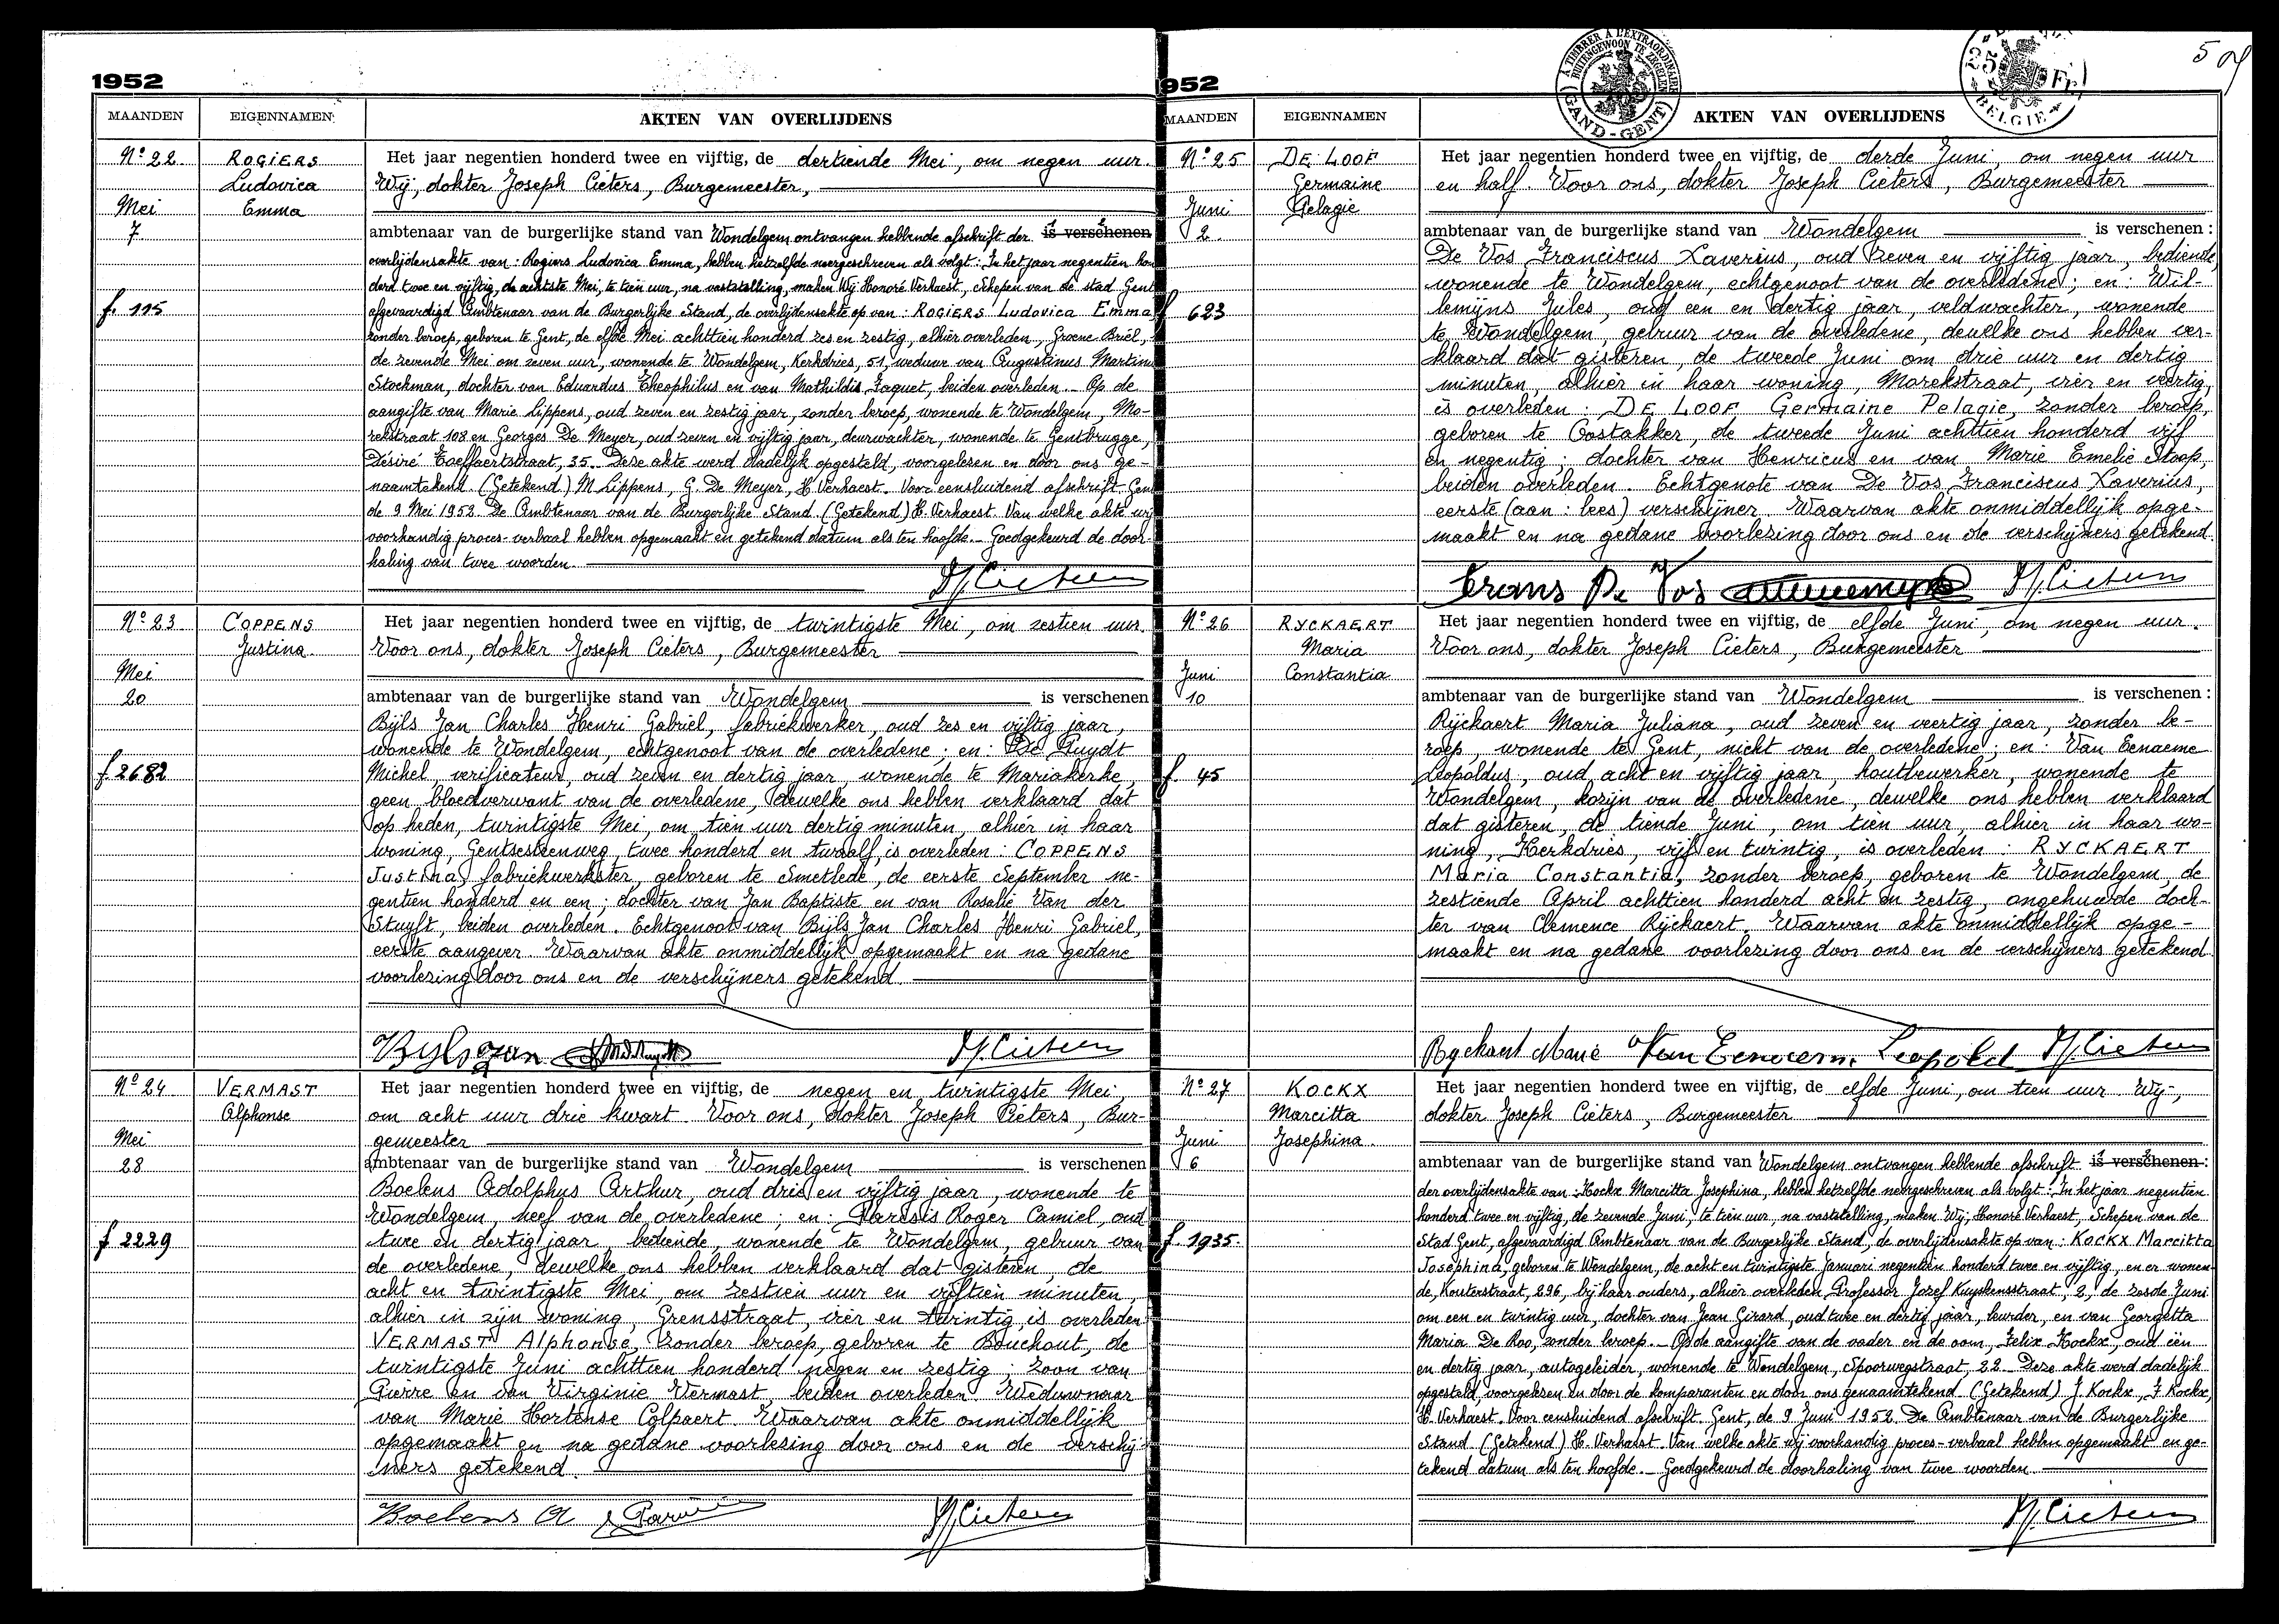 1952
MAANDEN EIGENNAMEN AKTEN VAN OVERLIJDENS
Nº 22
Mei
7
f. 115
ROGIERS
Ludovica
Emma
Het jaar negentien honderd twee en vijftig, de dertiende Mei, om negen uur.
Wij, dokter Joseph Pieters, Burgemeester,
ambtenaar van de burgerlijke stand van Wondelgem ontvangen hebbende afschrift der is verschenen
overlijdensakte van: Rogiers Ludovica Emma, hebben hetzelfde neergeschreven als volgt: In het jaar negentien hon
derd twee en vijftig, de achtste Mei, te tien uur, na vaststelling, maken Wij Honoré Verhaest, Schepen van de stad Gent
afgevaardigd Ambtenaar van de Burgerlijke Stand, de overlijdensakte op van: ROGIERS Ludovica Emma
zonder beroep, geboren te Gent, de elfde Mei achttien honderd zes en zestig, alhier overleden, Groene Briel,
de zevende Mei om zeven uur, wonende te Wondelgem, Kerkdries, 51, weduwe van Augustinus Martinu
Stockman, dochter van Eduardus Theophilus en van Mathildis Jaquet, beiden overleden. Op de
aangifte van Marie Lippens, oud zeven en zestig jaar, zonder beroep, wonende te Wondelgem, Mo-
rekstraat 108 en Georges De Meyer, oud zeven en vijftig jaar, deurwachter, wonende te Gentbrugge,
Désiré Toeffaertstraat, 35. Deze akte werd dadelijk opgesteld, voorgelezen en door ons ge-
naamtekend. (Getekend) M Lippens, G. De Meyer, H Verhaest. Voor eensluidend afschrift Gent
de 9 Mei 1952. De Ambtenaar van de Burgerlijke Stand. (Getekend) H. Verhaest. Van welke akte wij
voorhandig proces-verbaal hebben opgemaakt en getekend datum als ten hoofde. Goedgekeurd de door-
haling van twee woorden.
Nº 23
Mei
20
f 2682
COPPENS
Justina
Het jaar negentien honderd twee en vijftig, de twintigste Mei, om zestien uur.
Voor ons, dokter Joseph Pieters, Burgemeester
ambtenaar van de burgerlijke stand van Wondelgem is verschenen
Bijls Jan Charles Henri Gabriel, fabriekwerker, oud zes en vijftig jaar,
wonende te Wondelgem, echtgenoot van de overledene; en: De Ruydt
Michel, verificateur, oud zeven en dertig jaar, wonende te Mariakerke,
geen bloedverwant van de overledene, dewelke ons hebben verklaard dat
op heden, twintigste Mei, om tien uur dertig minuten, alhier in haar
woning, Gentsesteenweg, twee honderd en twaalf, is overleden: COPPENS
Justina, fabriekwerkster, geboren te Smetlede, de eerste September ne-
gentien honderd en een; dochter van Jan Baptiste en van Rosalie Van der
Stuyft, beiden overleden. Echtgenoot van Bijls Jan Charles Henri Gabriel,
eerste aangever. Waarvan akte onmiddellijk opgemaakt en na gedane
voorlezing door ons en de verschijners getekend.
Byls jan
Nº 24
Mei
28
f 2229
VERMAST
Alphonse
Het jaar negentien honderd twee en vijftig, de negen en twintigste Mei,
om acht uur drie kwart. Voor ons, dokter Joseph Pieters, Bur-
gemeester
ambtenaar van de burgerlijke stand van Wondelgem is verschenen
Boelens Adolphus Arthur, oud drie en vijftig jaar, wonende te
Wondelgem, neef van de overledene; en: Paresis Roger Camiel, oud
twee en dertig jaar, bediende, wonende te Wondelgem, gebuur van
de overledene, dewelke ons hebben verklaard dat gisteren, de
acht en twintigste Mei, om zestien uur en vijftien minuten,
alhier in zijn woning, Grensstraat, vier en twintig, is overleden
VERMAST Alphonse, zonder beroep, geboren te Bouchout, de
twintigste Juni achttien honderd negen en zestig; zoon van
Pierre en van Virginie Vermast, beiden overleden. Weduwnaar
van Marie Hortense Colpaert. Waarvan akte onmiddellijk
opgemaakt en na gedane voorlezing door ons en de verschij-
ners getekend.
Boelens A
952
MAANDEN EIGENNAMEN AKTEN VAN OVERLIJDENS
À TIMBRER À L'EXTRAORDINAIRE
BUITENGEWOON TE ZEGELEN
GAND-GENT
BELGIE
Nº 25
Juni
2
f 623
DE LOOF
Germaine
Pelagie
Het jaar negentien honderd twee en vijftig, de derde Juni, om negen uur
en half. Voor ons, dokter Joseph Pieters, Burgemeester
ambtenaar van de burgerlijke stand van Wondelgem is verschenen:
De Vos Franciscus Xaverius, oud zeven en vijftig jaar, bediende,
wonende te Wondelgem, echtgenoot van de overledene; en: Wil-
lemijns Jules, oud een en dertig jaar, veldwachter, wonende
te Wondelgem, gebuur van de overledene, dewelke ons hebben ver-
klaard dat gisteren, de tweede Juni om drie uur en dertig
minuten, alhier in haar woning, Morekstraat, vier en veertig,
is overleden: DE LOOF Germaine Pelagie, zonder beroep,
geboren te Oostakker, de tweede Juni achttien honderd vijf
en negentig; dochter van Henricus en van Marie Emelie Stoop,
beiden overleden. Echtgenote van De Vos Franciscus Xaverius,
eerste (aan: lees) verschijner. Waarvan akte onmiddellijk opge-
maakt en na gedane voorlezing door ons en de verschijners getekend.
Frans De Vos
Nº 26
Juni
10
f. 45
RYCKAERT
Maria
Constantia
Het jaar negentien honderd twee en vijftig, de elfde Juni, om negen uur.
Voor ons, dokter Joseph Pieters, Burgemeester
ambtenaar van de burgerlijke stand van Wondelgem is verschenen:
Rijckaert Maria Juliana, oud zeven en veertig jaar, zonder be-
roep, wonende te Gent, nicht van de overledene; en: Van Eenaeme
Leopoldus, oud acht en vijftig jaar, houtbewerker, wonende te
Wondelgem, kozijn van de overledene, dewelke ons hebben verklaard
dat gisteren, de tiende Juni, om tien uur, alhier in haar wo-
ning, Kerkdries, vijf en twintig, is overleden: RYCKAERT
Maria Constantia, zonder beroep, geboren te Wondelgem, de
zestiende April achttien honderd acht en zestig, ongehuwde doch-
ter van Clemence Rijckaert. Waarvan akte onmiddellijk opge-
maakt en na gedane voorlezing door ons en de verschijners getekend.
Nº 27
Juni
6
f. 1935.
KOCKX
Marcitta
Josephina.
Het jaar negentien honderd twee en vijftig, de elfde Juni, om tien uur. Wij,
dokter Joseph Pieters, Burgemeester
ambtenaar van de burgerlijke stand van Wondelgem ontvangen hebbende afschrift is verschenen:
der overlijdensakte van: Kockx Marcitta Josephina, hebben hetzelfde neergeschreven als volgt: In het jaar negentien
honderd twee en vijftig, de zevende Juni, te tien uur, na vaststelling, maken Wij, Honoré Verhaest, Schepen van de
Stad Gent, afgevaardigd Ambtenaar van de Burgerlijke Stand, de overlijdensakte op van: KOCKX Marcitta
Josephina, geboren te Wondelgem, de acht en twintigste Januari negentien honderd twee en vijftig, en er wonen-
de, Kosterstraat, 296, bij haar ouders, alhier overleden, Professor Jozef Kuyskensstraat, 2, de zesde Juni
om een en twintig uur, dochter van Jean Girard, oud twee en dertig jaar, leurder, en van Georgetta
Maria De Roo, zonder beroep. Op de aangifte van de vader en de oom, Felix Kockx, oud één
en dertig jaar, autogeleider, wonende te Wondelgem, Spoorwegstraat, 22. Deze akte werd dadelijk
opgesteld, voorgelezen en door de komparanten en door ons genaamtekend. (Getekend) J. Kockx, F Kockx,
H. Verhaest. Voor eensluidend afschrift. Gent, de 9 Juni 1952. De Ambtenaar van de Burgerlijke
Stand. (Getekend) H. Verhaest. Van welke akte wij voorhandig proces-verbaal hebben opgemaakt en ge-
tekend datum als ten hoofde. Goedgekeurd de doorhaling van twee woorden.